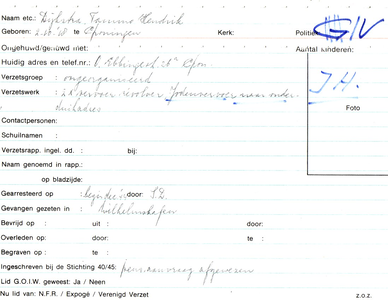 Naam etc.: Dijkstra, Tamme Hendrik GIV
Geboren: 2.10.'18 te Groningen Kerk: Politiek:
Ongehuwd/gehuwd met: Aantal kinderen:
Huidig adres en telef.nr.: Gron.
Verzetsgroep : ongeorganiseerd J.H.
Verzetswerk : 2x vervoer revolver Jodenvervoer naar onder- Foto
duikadres
Contactpersonen:
Schuilnaam :
Verzetsrapp. ingel. dd. : bij:
Naam genoemd in rapp.:
op bladzijde:
Gearresteerd op : begin door: S.D.
Gevangen gezeten in : Wilhelmshafen
Bevrijd op : uit : door:
Overleden op: door: te :
Begraven op : te :
Ingeschreven bij de Stichting 40/45: pens.aanvraag afgewezen
Lid G.O.I.W. geweest: Ja / Neen
Nu lid van: N.F.R. / Expogé / Verenigd Verzet z.o.z.